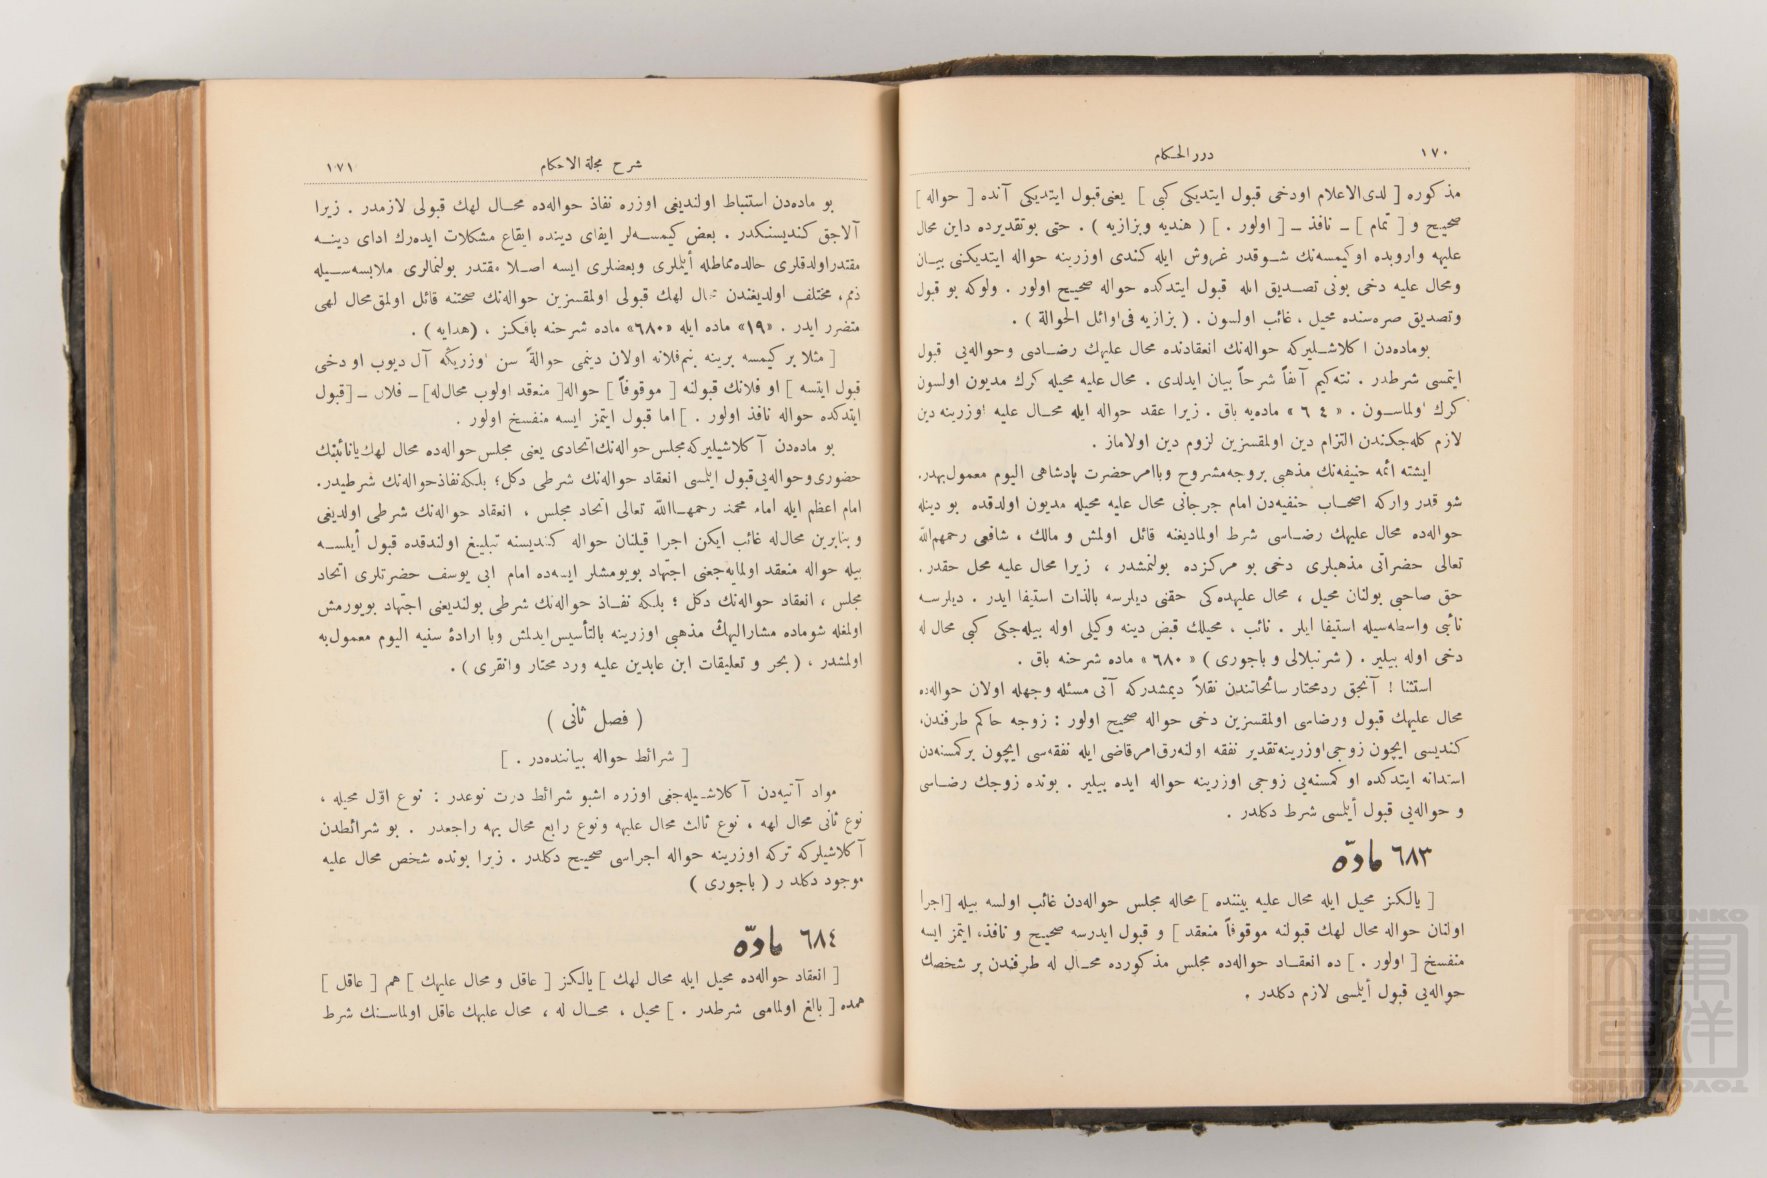 ١٧٠
درر الحكام
مذكوره [ لدى الاعلام اودخى قبول ايتديكى كبى ] يعنى قبول ايتديكى آنده [ حواله ]
صحيح و [ تمام ] ــ نافذ ــ [ اولور . ] ( هنديه وبزازيه ) . حتى بوتقديرده داين محال
عليه واروبده او كيمسه‌نك شوقدر غروش ايله كندى اوزرينه حواله ايتديكنى بيان
ومحال عليه دخى بونى تصديق ايله قبول ايتدكده حواله صحيح اولور . ولوكه بو قبول
وتصديق صره‌سنده محيل ، غائب اولسون . ( بزازيه فى اوائل الحوالة ) .
بوماده‌دن اكلاشليركه حواله‌نك انعقادنده محال عليهك رضادى وحواله‌يى قبول
ايتمسى شرطدر . نته‌كيم آنفاً شرحاً بيان ايدلدى . محال عليه محيله كرك مديون اولسون
كرك اولماسون . « ٦٤ » ماده‌يه باق . زيرا عقد حواله ايله محال عليه اوزرينه دين
لازم كله‌جكندن التزام دين اولمقسزين لزوم دين اولاماز .
ايشته ائمه حنيفه‌نك مذهبى بروجه مشروح وباامر حضرت پادشاهى اليوم معمول‌بهدر.
شو قدر واركه اصحاب حنفيه‌دن امام جرجانى محال عليه محيله مديون اولدقده بو دينله
حواله‌ده محال عليهك رضاسى شرط اولماديغنه قائل اولمش و مالك ، شافعى رحمهم‌الله
تعالى حضراتى مذهبلرى دخى بو مركزده بولنمشدر ، زيرا محال عليه محل حقدر.
حق صاحبى بولنان محيل ، محال عليهده‌كى حقنى ديلرسه بالذات استيفا ايدر . ديلرسه
نائبى واسطه‌سيله استيفا ايلر . نائب ، محيلك قبض دينه وكيلى اوله بيله‌جكى كبى محال له
دخى اوله بيلير . ( شرنبلالى و باجورى ) « ٦٨٠ » ماده شرحنه باق .
استثنا ! آنجق ردمختار سائحاتندن نقلاً ديمشدركه آتى مسئله وجهله اولان حواله‌ده
محال عليهك قبول ورضاسى اولمقسزين دخى حواله صحيح اولور : زوجه حاكم طرفندن،
كنديسى ايچون زوجى اوزرينه تقدير نفقه اولنه‌رق امر قاضى ايله نفقه‌سى ايچون بركمسنه‌دن
استدانه ايتدكده او كمسنه‌يى زوجى اوزرينه حواله ايده بيلير . بونده زوجك رضاسى
و حواله‌يى قبول أيلمسى شرط دكلدر .
٦٨٣ مادّه
[ يالكز محيل ايله محال عليه بيننده ] محاله مجلس حواله‌دن غائب اولسه بيله [اجرا
اولنان حواله محال لهك قبولنه موقوفاً منعقد ] و قبول ايدرسه صحيح و نافذ، ايتمز ايسه
منفسخ [ اولور . ] ده انعقاد حواله‌ده مجلس مذكورده محال له طرفندن بر شخصك
حواله‌يى قبول أيلمسى لازم دكلدر .
شرح مجلة الاحكام
١٧١
بو ماده‌دن استنباط اولنديغى اوزره نفاذ حواله‌ده محال لهك قبولى لازمدر . زيرا
آلاجق كنديسنكدر . بعض كيمسه‌لر ايفاى دينده ايقاع مشكلات ايده‌رك اداى دينه
مقتدر اولدقلرى حالده مماطله أيلملرى وبعضلرى ايسه اصلا مقتدر بولنمالرى ملابسه‌سيله
ذمم، مختلف اولديغندن محال لهك قبولى اولمقسزين حواله‌نك صحتنه قائل اولمق محال لهى
متضرر ايدر . «١٩» ماده ايله «٦٨٠» ماده شرحنه باقكز ، (هدايه ) .
[ مثلا بر كيمسه برينه بنم فلانه اولان دينمى حوالةً سن اوزريكه آل ديوب او دخى
قبول ايتسه ] او فلانك قبولنه [ موقوفاً ] حواله [ منعقد اولوب محال‌له] ــ فلان ــ [قبول
ايتدكده حواله نافذ اولور . ] اما قبول ايتمز ايسه منفسخ اولور .
بو ماده‌دن آكلاشيليركه مجلس حواله‌نك اتحادى يعنى مجلس حواله‌ده محال لهك يانائبنك
حضورى وحواله‌يى قبول ايلمسى انعقاد حواله‌نك شرطى دكل؛ بلكه نفاذ حواله‌نك شرطيدر.
امام اعظم ايله امام محمد رحمهما الله تعالى اتحاد مجلس ، انعقاد حواله‌نك شرطى اولديغى
و بنابرين محال‌له غائب ايكن اجرا قيلنان حواله كنديسنه تبليغ اولندقده قبول أيلسه
بيله حواله منعقد اولمايه‌جغنى اجتهاد بويومشلر ايسه‌ده امام ابى يوسف حضرتلرى اتحاد
مجلس ، انعقاد حواله‌نك دكل ؛ بلكه نفاذ حواله‌نك شرطى بولنديغنى اجتهاد بويورمش
اولمغله شوماده مشاراليهك مذهبى اوزرينه بالتأسيس ايدلمش وبا ارادهٔ سنيه اليوم معمول‌به
اولمشدر ، ( بحر و تعليقات ابن عابدين عليه ورد محتار وانقرى ) .
( فصل ثانى )
[ شرائط حواله بياننده‌در . ]
مواد آتيه‌دن آكلاشيله‌جغى اوزره اشبو شرائط درت نوعدر : نوع اوّل محيله ،
نوع ثانى محال لهه ، نوع ثالث محال عليهه ونوع رابع محال بهه راجعدر . بو شرائطدن
آكلاشيلركه تركه اوزرينه حواله اجراسى صحيح دكلدر . زيرا بونده شخص محال عليه
موجود دكلدر ( باجورى )
٦٨٤ مادّه
[ انعقاد حواله‌ده محيل ايله محال لهك ] يالكز [ عاقل و محال عليهك ] هم [ عاقل ]
همده [ بالغ اولمامى شرطدر . ] محيل ، محال له ، محال عليهك عاقل اولماسنك شرط
TOYO BUNKO
東洋文庫
TOYO BUNKO